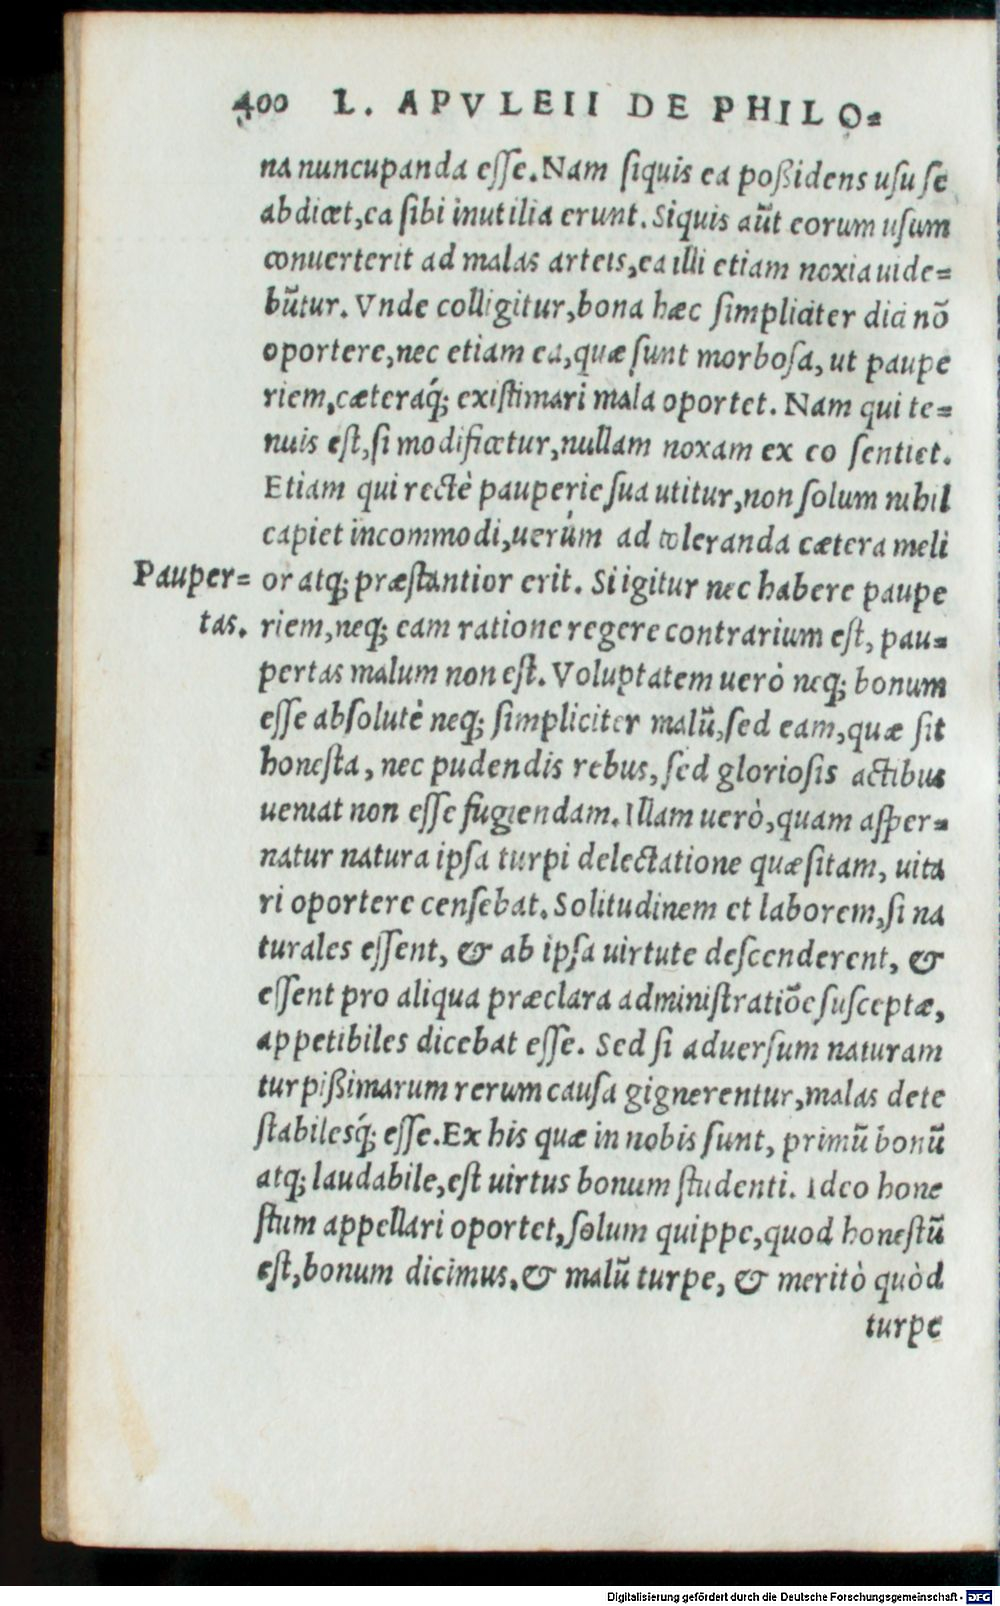 400 L. APVLEII DE PHILO=
na nuncupanda esse. Nam siquis ea poßidens usu se
abdicet, ea sibi inutilia erunt. Siquis aūt eorum usum
conuerterit ad malas arteis, ea illi etiam noxia uide=
būtur. Vnde colligitur, bona hæc simpliciter dici nō
oportere, nec etiam ea, quæ sunt morbosa, ut paupe
riem, cæteraq́; existimari mala oportet. Nam qui te=
nuis est, si modificetur, nullam noxam ex eo sentiet.
Etiam qui rectè pauperie sua utitur, non solum nihil
capiet incommodi, uerúm ad toleranda cætera meli
Pauper= or atq; præstantior erit. Si igitur nec habere paupe
tas. riem, neq; eam ratione regere contrarium est, pau=
pertas malum non est. Voluptatem uerò neq; bonum
esse absolutè neq; simpliciter malū, sed eam, quæ sit
honesta, nec pudendis rebus, sed gloriosis actibus
ueniat non esse fugiendam. Illam uerò, quam asper=
natur natura ipsa turpi delectatione quæsitam, uita
ri oportere censebat. Solitudinem et laborem, si na
turales essent, & ab ipsa uirtute descenderent, &
essent pro aliqua præclara administratiōe susceptæ,
appetibiles dicebat esse. Sed si aduersum naturam
turpißimarum rerum causa gignerentur, malas dete
stabilesq́; esse. Ex his quæ in nobis sunt, primū bonū
atq; laudabile, est uirtus bonum studenti. Ideo hone
stum appellari oportet, solum quippe, quod honestū
est, bonum dicimus, & malū turpe, & meritò quòd
turpe
Digitalisierung gefördert durch die Deutsche Forschungsgemeinschaft - DFG